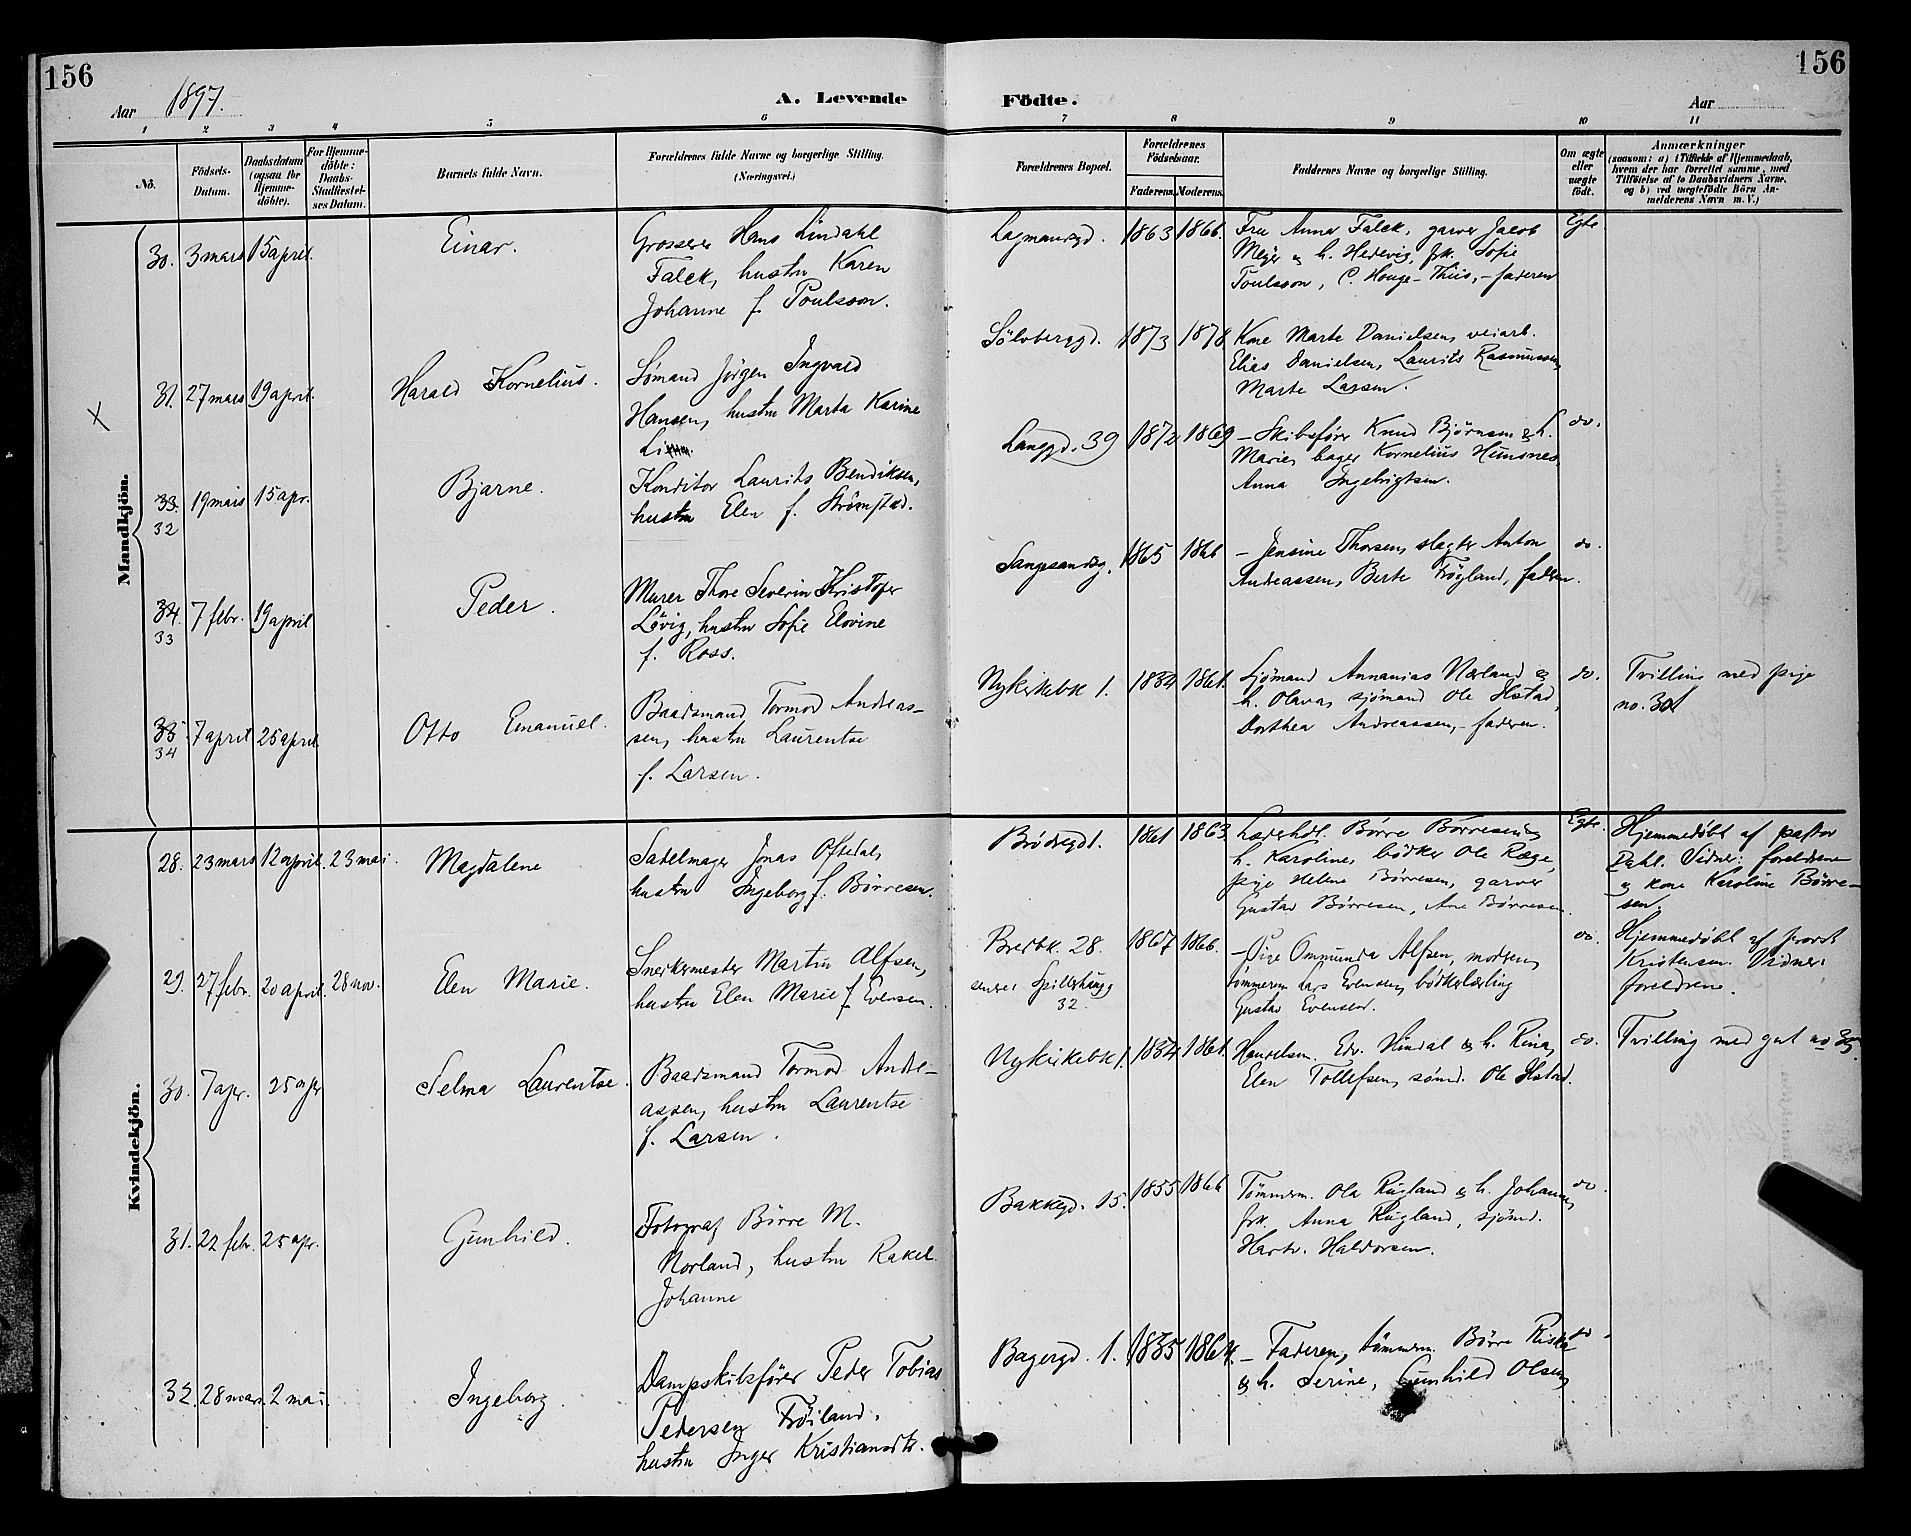 156
156
Aar 1897.
A. Levende Födte.
Aar
1 2 3 4 5 6 7 8 9 10 11
No.
Födsels-
Datum.
Daabsdatum
(ogsaa for
Hjemme-
döbte).
For Hjemme-
döbte:
Daabs-
Stadfæstel-
ses Datum.
Barnets fulde Navn.
Forældrenes fulde Navne og borgerlige Stilling.
(Næringsvei.)
Forældrenes Bopæl.
Forældrenes
Födselsaar.
Faderens. Moderens.
Faddernes Navne og borgerlige Stilling.
Om ægte
eller
uægte
födt.
Anmærkninger
(saasom: a) i Tilfælde af Hjemmedaab,
hvem der har forrettet samme, med
Tilföielse af to Daabsvidners Navne,
og b) ved uægtefödte Börn An-
melderens Navn m. V.)
Mandkjön.
30. 3 mars 15 april. Einar.
Grosserer Hans Lindahl
Falck, hustru Karen
Johanne f. Poulsson.
Lagmandsgd. 1863 1866.
Fru Anna Falck, garver Jacob
Meyer & h. Hedevig, frk. Sofie
Poulsson, C. Houge-Thiis, - faderen
Egte
X 31. 27 mars 19 april. Harald Kornelius.
Sømand Jørgen Ingvald
Hansen, hustru Marta Karine
Sölvberggd. 1873 1878
Kone Marte Danielsen, veiarb.
Elias Danielsen, Laurits Rasmussen,
Marte Larsen.
33.
32
19 mars 15 apr. Bjarne.
Konditor Laurits Bendiksen,
hustru Elen f. Strømstad.
Langgd. 39 1872 1869
- Skibsfører Knud Bjørnsen & h.
Marie, bager Kornelius Hunsnes,
Anna Ingebrigtsen.
do.
34.
33
7 febr. 19 april Peder.
Murer Thore Severin Kristofer
Lövig, hustru Sofie Elovine
f. Ross.
1865 1866
- Jensine Thorsen, slagter Anton
Andreassen, Berte Frøgland, faderen.
do.
35
34
7 april 25 april Otto Emanuel.
Baadsmand Tormod Andreas-
sen, hustru Laurentse
f. Larsen.
Nykirkebk 1. 1834 1861.
Sjömand Annanias Nærland &
h. Olava, sjömand Ole Hstad,
Dorthea Andreassen, - faderen.
do.
Tvilling med pige
no. 30
Kvindekjön.
28. 23 mars 12 april. 23 mai. Magdalene
Sadelmager Jonas Oftedal,
hustru Ingeborg f. Börresen.
Brödregd 1. 1861 1863.
Læderhdl. Börre Börresen &
h. Karoline, bödker Ole Ræge,
pige Helene Börresen, garver
Gustav Börresen, Ane Börresen.
Egte.
Hjemmedöbt af pastor
Dahl. Vidner: foreldrene
& kone Karoline Börre-
sen.
29. 27 febr. 20 april. 28 nov. Elen Marie.
Snedkermester Martin Alfsen,
hustru Elen Marie f. Evensen.
Bredbk. 28.
senere Spilderhaugg
32.
1867 1866.
- Pige Ommunda Alfsen, moderen,
tömmerm. Lars Evensen, bödkerlærling
Gustav Evensen.
do.
Hjemmedöbt af provst
Kristensen. Vidner:
foreldrene.
30. 7 apr. 25 apr Selma Laurentse.
Baadsmand Tormod Andre-
assen, hustru Laurentse
f. Larsen.
Nykirkebk 1. 1834 1861.
Handelsm. Edv. Hindal & h. Rina,
Elen Tollefsen, sömd. Ole Hstad.
do.
Tvilling med gut no 35.
31. 22 febr. 25 apr. Gunhild.
Fotograf Börre M.
Norland, hustru Rakel
Johanne
Bakkegd. 15. 1855 1866
Tömmerm. Ola Rügland & h. Johanne,
frk. Anna Rügland, sjömd.
Hartv. Haldorsen.
do.
32. 28 mars. 2 mai. Ingeborg.
Dampskibsfører Peder Tobias
Pedersen Fröiland,
hustru Inger Kristiansdtr.
Bagergd. 1. 1835 1864.
- Faderen, tömmerm. Börre Riske
& h. Serine, Gunhild Olsen,
do.